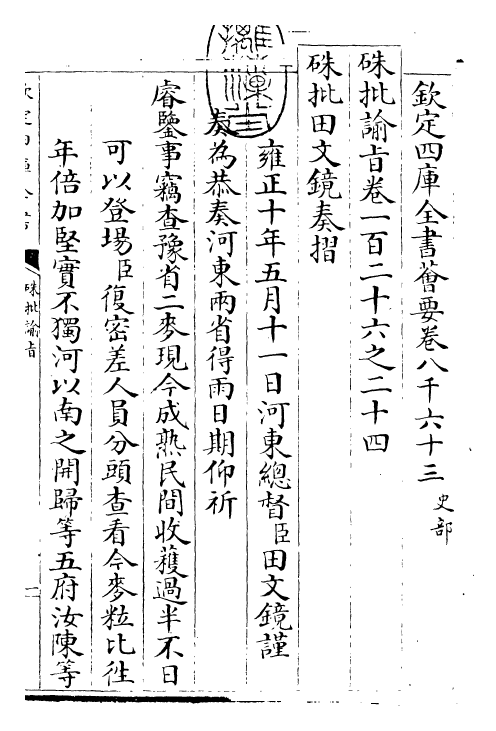 欽定四庫全書薈要卷八千六十三 史部
硃批諭旨卷一百二十六之二十四
硃批田文鏡奏摺
雍正十年五月十一日河東總督臣田文鏡謹
奏為恭奏河東兩省得雨日期仰祈
睿鑒事竊查豫省二麥現今成熟民間收穫過半不日
可以登場臣復密差人員分頭查看今麥粒比徃
年倍加堅實不獨河以南之開歸等五府汝陳等
硃批諭旨